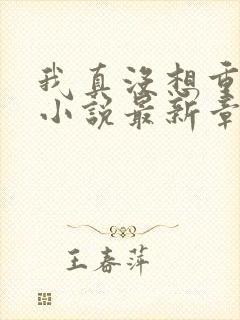 我真没想重
小说最新章
王春萍